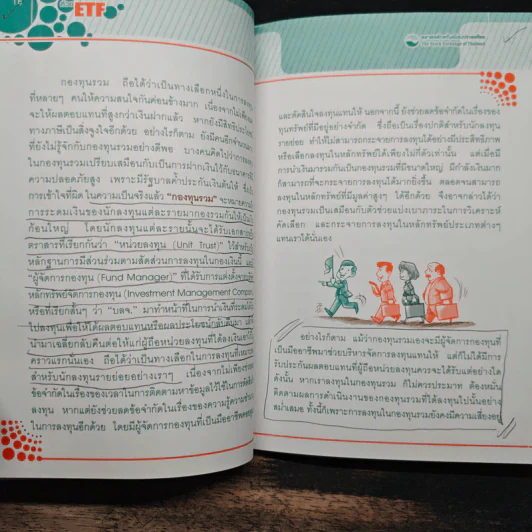 16
ETF
กองทุนรวม ถือได้ว่าเป็นทางเลือกหนึ่งในการลง
ที่หลายๆ คนให้ความสนใจกันค่อนข้างมาก เนื่องจากไม่เพียง
จะให้ผลตอบแทนที่สูงกว่าเงินฝากแล้ว หากยังมีสิทธิประโยชน์
ทางภาษีเป็นสิ่งจูงใจอีกด้วย อย่างไรก็ตาม ยังมีคนอีกจำนวน
ที่ยังไม่รู้จักกับกองทุนรวมอย่างดีพอ บางคนคิดไปว่าการลงทุน
ในกองทุนรวมเปรียบเสมือนกับเป็นการฝากเงินไว้กับธนาคาร
ความปลอดภัยสูง เพราะมีรัฐบาลค้ำประกันเงินต้นให้ ซึ่งเป็น
การเข้าใจที่ผิด ในความเป็นจริงแล้ว "กองทุนรวม" จะหมายความ
การระดมเงินของนักลงทุนแต่ละรายมากองรวมกันให้เป็นเงิน
ก้อนใหญ่ โดยนักลงทุนแต่ละรายนั้นจะได้รับเอกสารหรือ
ตราสารที่เรียกกันว่า "หน่วยลงทุน (Unit Trust)" ไว้สำหรับเป็น
หลักฐานการมีส่วนร่วมตามสัดส่วนการลงทุนในกองเงินนี้ และ
"ผู้จัดการกองทุน (Fund Manager)" ที่ได้รับการแต่งตั้งจากบริษัท
หลักทรัพย์จัดการกองทุน (Investment Management Company)
หรือที่เรียกสั้นๆ ว่า "บลจ." มาทำหน้าที่ในการนำเงินที่ระดมได้
ไปลงทุนเพื่อให้ได้ผลตอบแทนหรือผลประโยชน์กลับคืนมา แล้ว
นำมาเฉลี่ยกลับคืนต่อให้แก่ผู้ถือหน่วยลงทุนที่ได้ลงเงินเอาไว้ใน
คราวแรกนั่นเอง ถือได้ว่าเป็นทางเลือกในการลงทุนที่เหมาะ
สำหรับนักลงทุนรายย่อยอย่างเราๆ เนื่องจากไม่เพียงช่วย
ข้อจำกัดในเรื่องของเวลาในการติดตามหาข้อมูลไว้ใช้ในการตัดสิน
ลงทุน หากแต่ยังช่วยลดข้อจำกัดในเรื่องของความรู้ความชำนาญ
ในการลงทุนอีกด้วย โดยมีผู้จัดการกองทุนที่เป็นมืออาชีพคอยดูแล
ตลาดหลักทรัพย์แห่งประเทศไทย
The Stock Exchange of Thailand
และตัดสินใจลงทุนแทนให้ นอกจากนี้ ยังช่วยลดข้อจำกัดในเรื่องของ
ทุนทรัพย์ที่มีอยู่อย่างจำกัด ซึ่งถือเป็นเรื่องปกติสำหรับนักลงทุน
รายย่อย ทำให้ไม่สามารถกระจายการลงทุนได้อย่างมีประสิทธิภาพ
หรือเลือกลงทุนในหลักทรัพย์ได้เพียงไม่กี่ตัวเท่านั้น แต่เมื่อมี
การนำเงินมารวมกันเป็นกองทุนรวมที่มีขนาดใหญ่ มีกำลังเงินมาก
ก็สามารถที่จะกระจายการลงทุนได้มากยิ่งขึ้น ตลอดจนสามารถ
ลงทุนในหลักทรัพย์ที่มีมูลค่าสูงๆ ได้อีกด้วย จึงอาจกล่าวได้ว่า
กองทุนรวมเป็นเสมือนกับตัวช่วยแบ่งเบาภาระในการวิเคราะห์
คัดเลือก และกระจายการลงทุนในหลักทรัพย์ประเภทต่างๆ
แทนเราได้นั่นเอง
อย่างไรก็ตาม แม้ว่ากองทุนรวมเองจะมีผู้จัดการกองทุนที่
เป็นมืออาชีพมาช่วยบริหารจัดการลงทุนแทนให้ แต่ก็ไม่ได้มีการ
รับประกันผลตอบแทนที่ผู้ถือหน่วยลงทุนควรจะได้รับแต่อย่างใด
ดังนั้น หากเราลงทุนในกองทุนรวม ก็ไม่ควรประมาท ต้องหมั่น
ติดตามผลการดำเนินงานของกองทุนรวมที่ได้ลงทุนไปนั้นอย่าง
สม่ำเสมอ ทั้งนี้ก็เพราะการลงทุนในกองทุนรวมยังคงมีความเสี่ยงอยู่